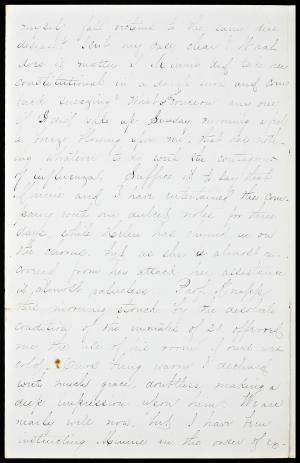 myself fall victims to the same dire
disease? Isn't my case clear? What
does it matter if Minnie did take her
constitutional in a damp wind and come
back sneezing? What concern any one
if I did wake up Sunday morning and
a breeze blowing upon me, that has noth-
ing whatever to do with the contagion
of influenza. Suffice it to say that
Minnie and I have entertained the com-
pany with our dulcet notes for three
days, while Helen has joined in on
the chorus, but as she is almost re-
covered from her attack her assistance
is almost valueless. Prof. Knapp
this morning struck by the desolate
condition of the inmates of 21 offered
me the use of his room if ours was
cold, his being warm. I declined
with much grace, doubtless making a
deep impression upon him. We are
nearly well now, but I have been
instructing Minnie in the order of ex-